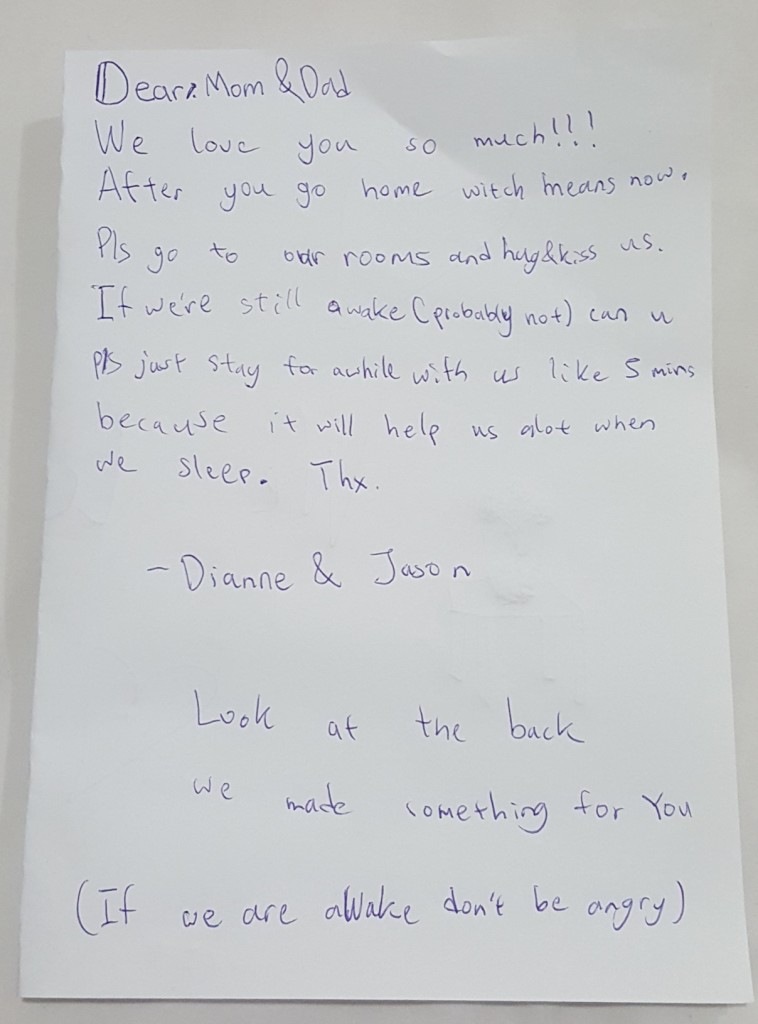 Dear: Mom & Dad
We love you so much!!!
After you go home witch means now.
Pls go to our rooms and hug&kiss us.
If we're still awake (probably not) can u
pls just stay for awhile with us like 5 mins
because it will help us alot when
we sleep. Thx.
- Dianne & Jason
Look at the back
we made something for You
(If we are aWake don't be angry)